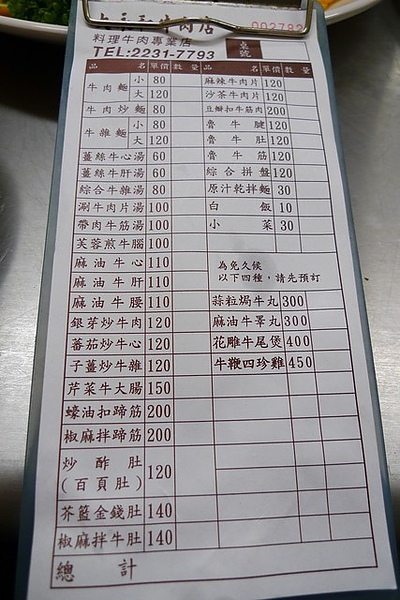 牛肉店
002782
料理牛肉專業店
TEL:2231-7793
桌號
品名 單價 數量 品名 單價 數量
牛肉麵 小 80
大 120
牛肉炒麵 80
牛雜麵 小 80
大 120
薑絲牛心湯 60
薑絲牛肝湯 60
綜合牛雜湯 80
涮牛肉片湯 100
帶肉牛筋湯 100
芙蓉煎牛腦 100
麻油牛心 110
麻油牛肝 110
麻油牛腰 110
銀芽炒牛肉 120
蕃茄炒牛心 120
子薑炒牛雜 120
芹菜牛大腸 150
蠔油扣蹄筋 200
椒麻拌蹄筋 200
炒酢肚
(百頁肚) 120
芥籃金錢肚 140
椒麻拌牛肚 140
總計
麻辣牛肉片 120
沙茶牛肉片 120
豆瓣扣牛筋肉 200
魯牛腱 120
魯牛肚 120
魯牛筋 120
綜合拼盤 120
原汁乾拌麵 30
白飯 10
小菜 30
為免久候
以下四種，請先預訂
蒜粒焗牛丸 300
麻油牛睪丸 300
花雕牛尾煲 400
牛鞭四珍雞 450